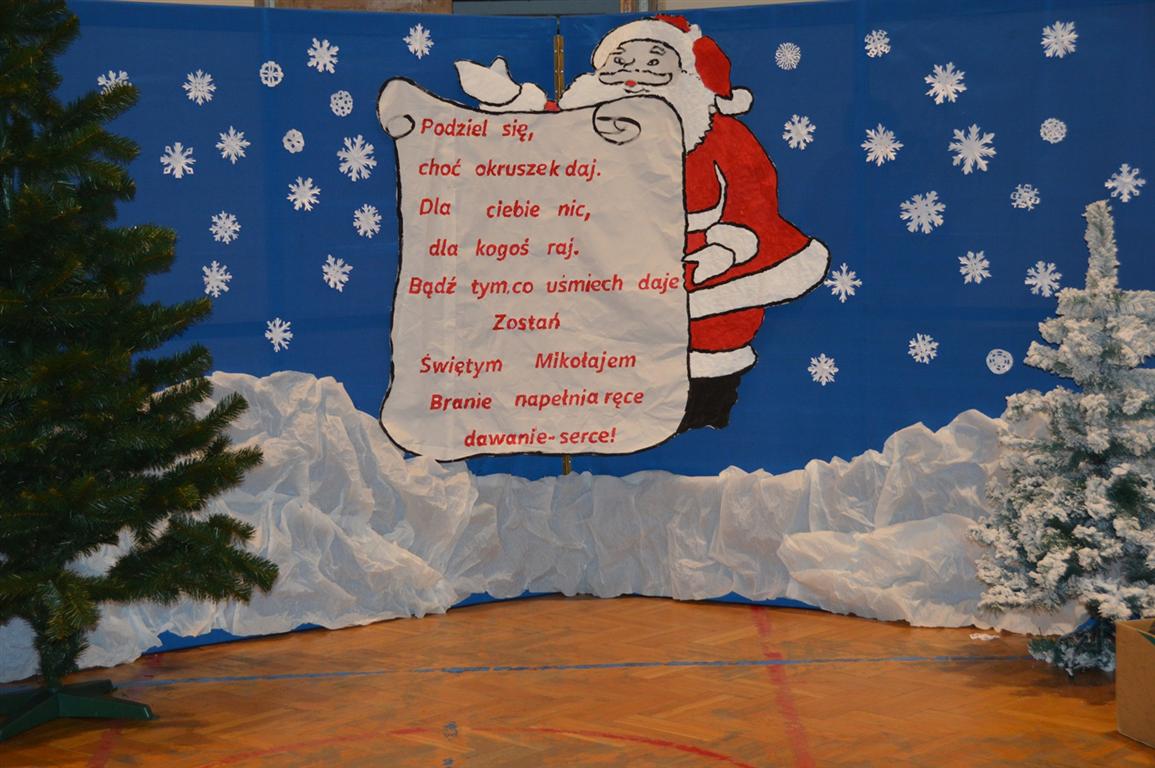 Podziel się,
choć okruszek daj.
Dla ciebie nic,
dla kogoś raj.
Bądź tym,co uśmiech daje
Zostań
Świętym Mikołajem
Branie napełnia ręce
dawanie-serce!